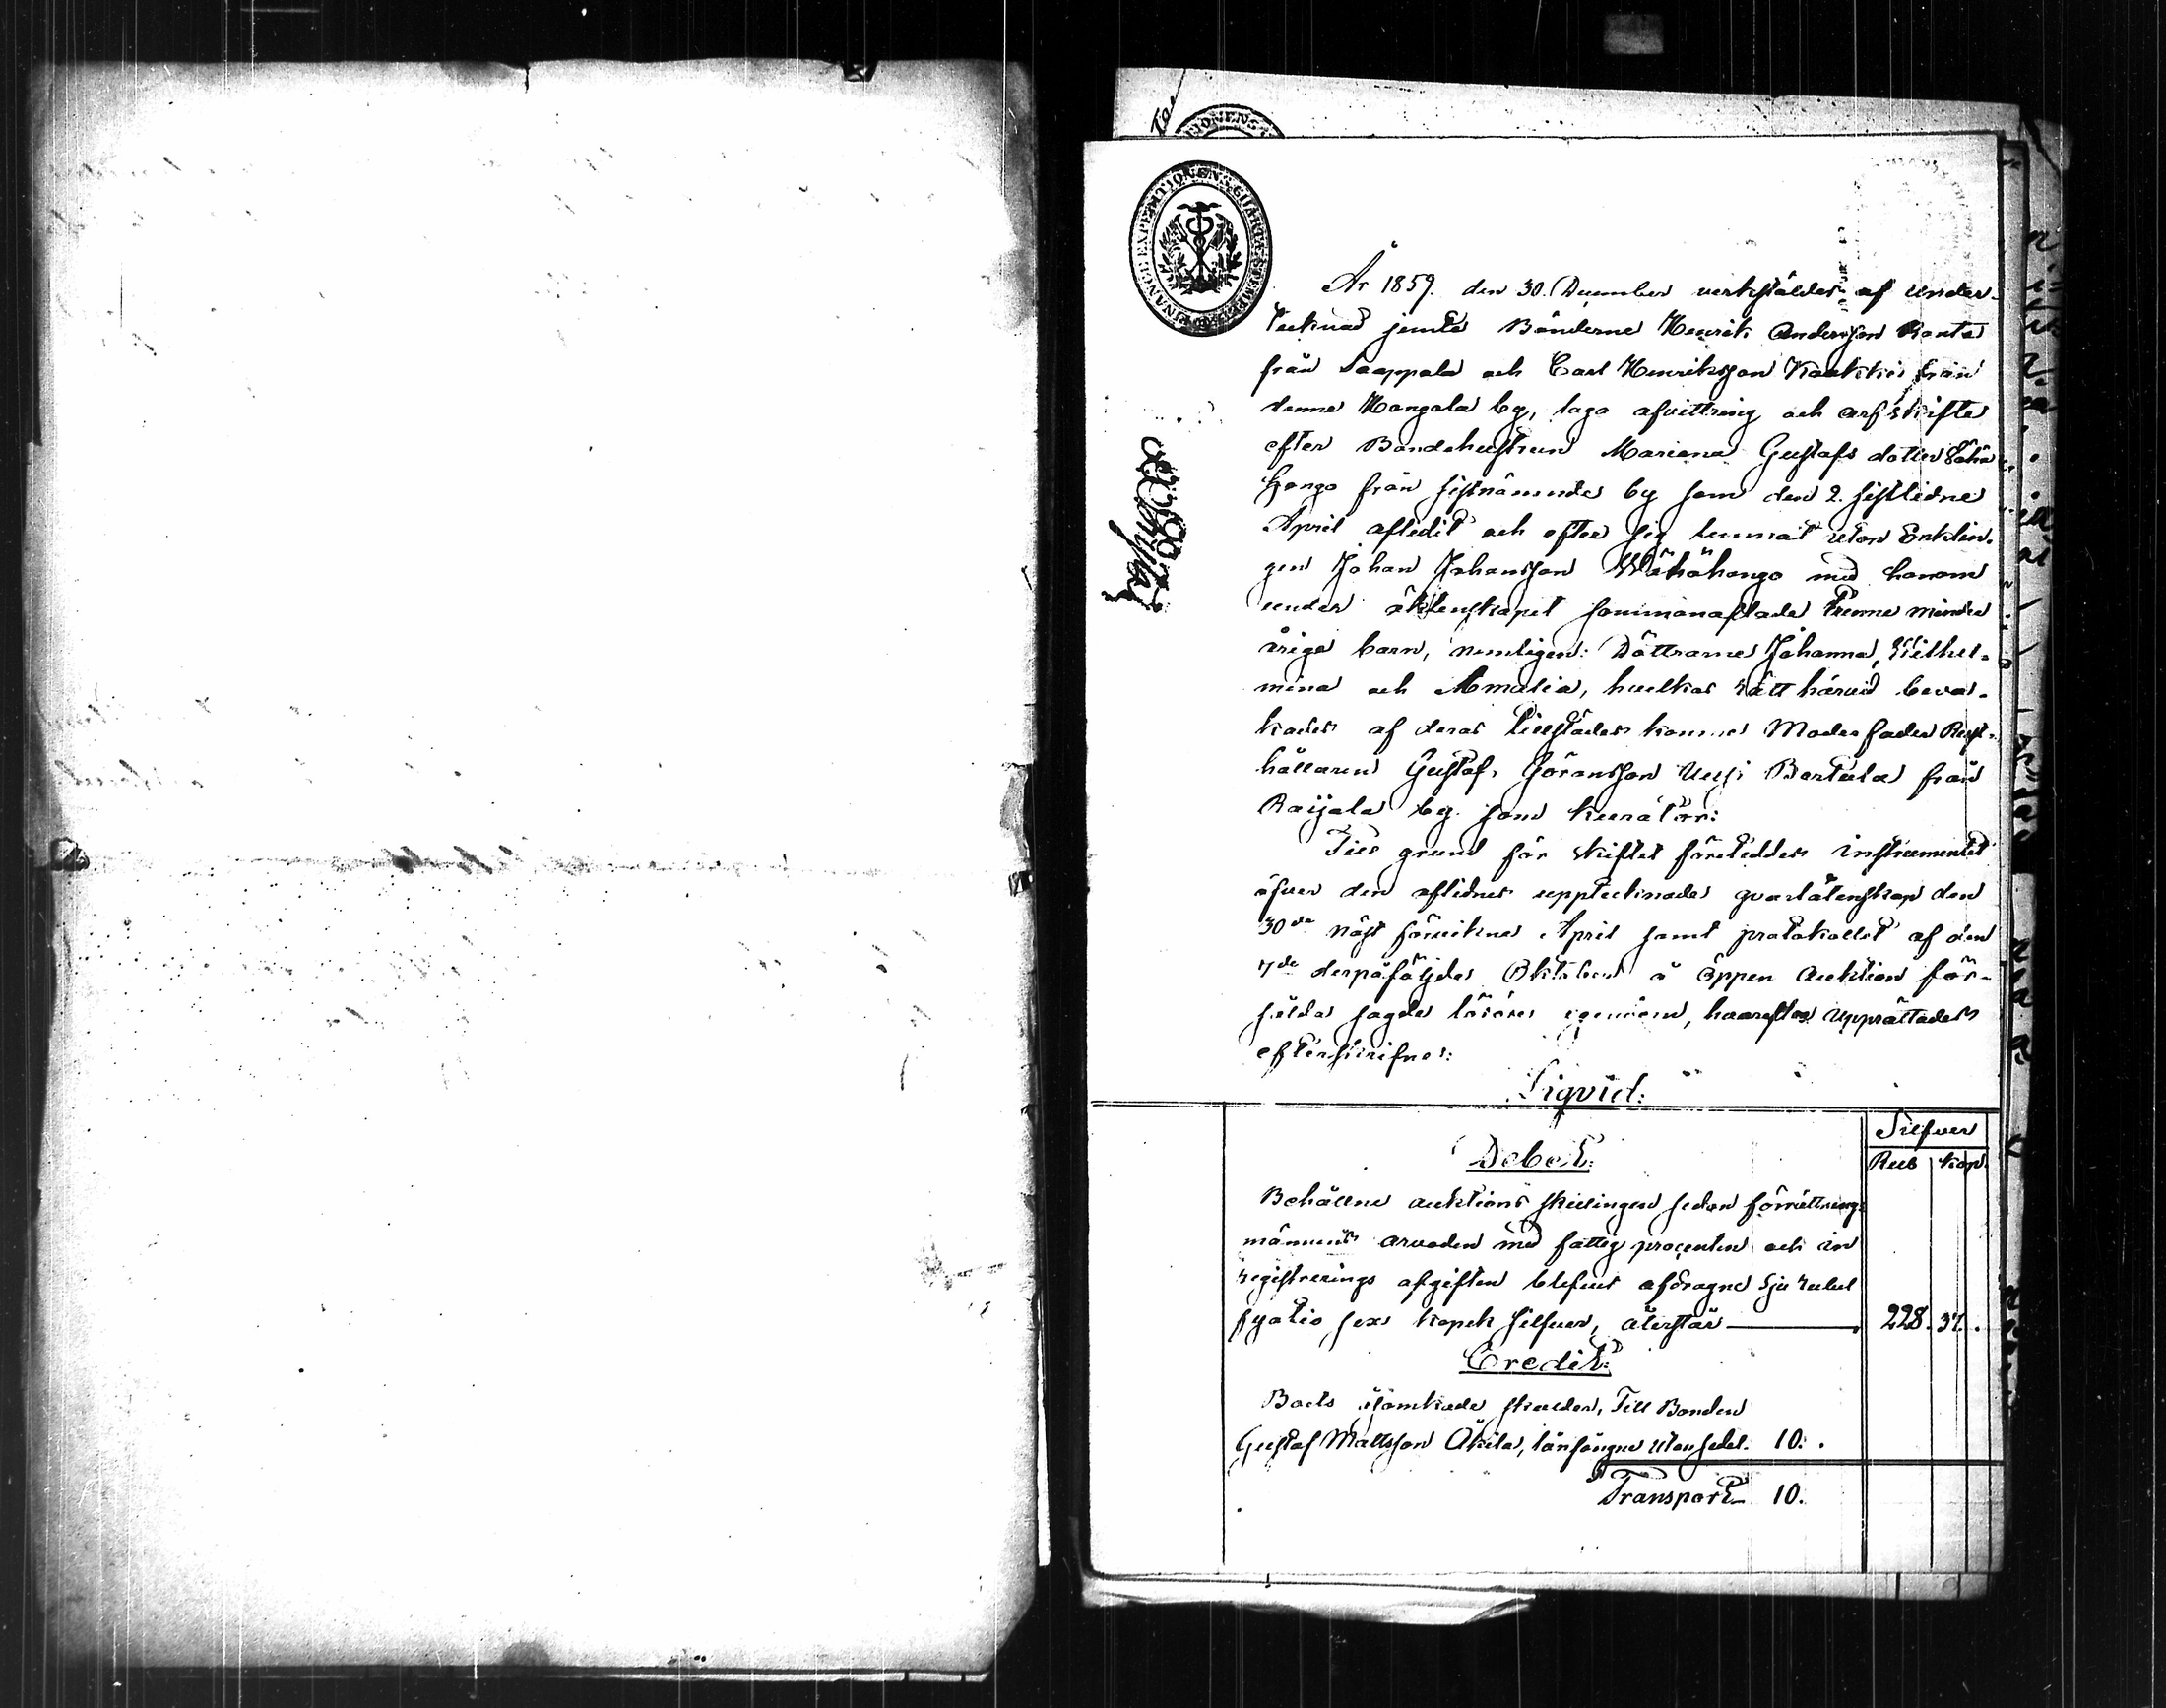 FINANCE EXPEDITIONENS CHARTÆ STEMPEL
År 1859. den 30. December verkstäldes af under-
tecknad jemte Bönderne Henrik Andersson Ranta
från Saappala och Carl Henriksson Kaukkis från
denna Hongola by, laga afvittring och arfskifte
efter Bondehustrun Mariana Gustafs dotter Wähä
hongo från sistnämnde by som den 2. sistlidne
April aflidit och efter sig lemnat utom Enklin-
gen Johan Johansson Wähähongo med honom
under äktenskapet sammanaflade trenne minder
åriga barn, nemligen: Döttrarne Johanna, Wilhel-
mina och Amalia, hvilkas rätt härvid beva-
kades af deras tillstädes komne Moderfader Rust-
hållaren Gustaf Göransson Uusi Bartula från
Raijala by som kurator:
Till grund för skiftet företeddes instrumentet
öfver den aflidnes upptecknade qvarlåtenskap den
30de näst förvikne April samt protokollet af den
7de derpåföljde Oktober å öppen auktion för-
sålda sagde lösöre egendom, hvarefter upprättades
efterskrifne:
Liqvid:
Silfver
Rub kop.
Debet:
Behållne auktions skillingen sedan förrättnings
männens arvoden med fattig procenten och in
registrerings afgiften blifvit afdragne sju rubel
fyatio sex kopek silfver, återstår 228. 37.
Credit:
Boets utomkrade skulder, Till Bonden
Gustaf Mattsson Äkila, lånfångne utan sedel. 10.
Transport 10.